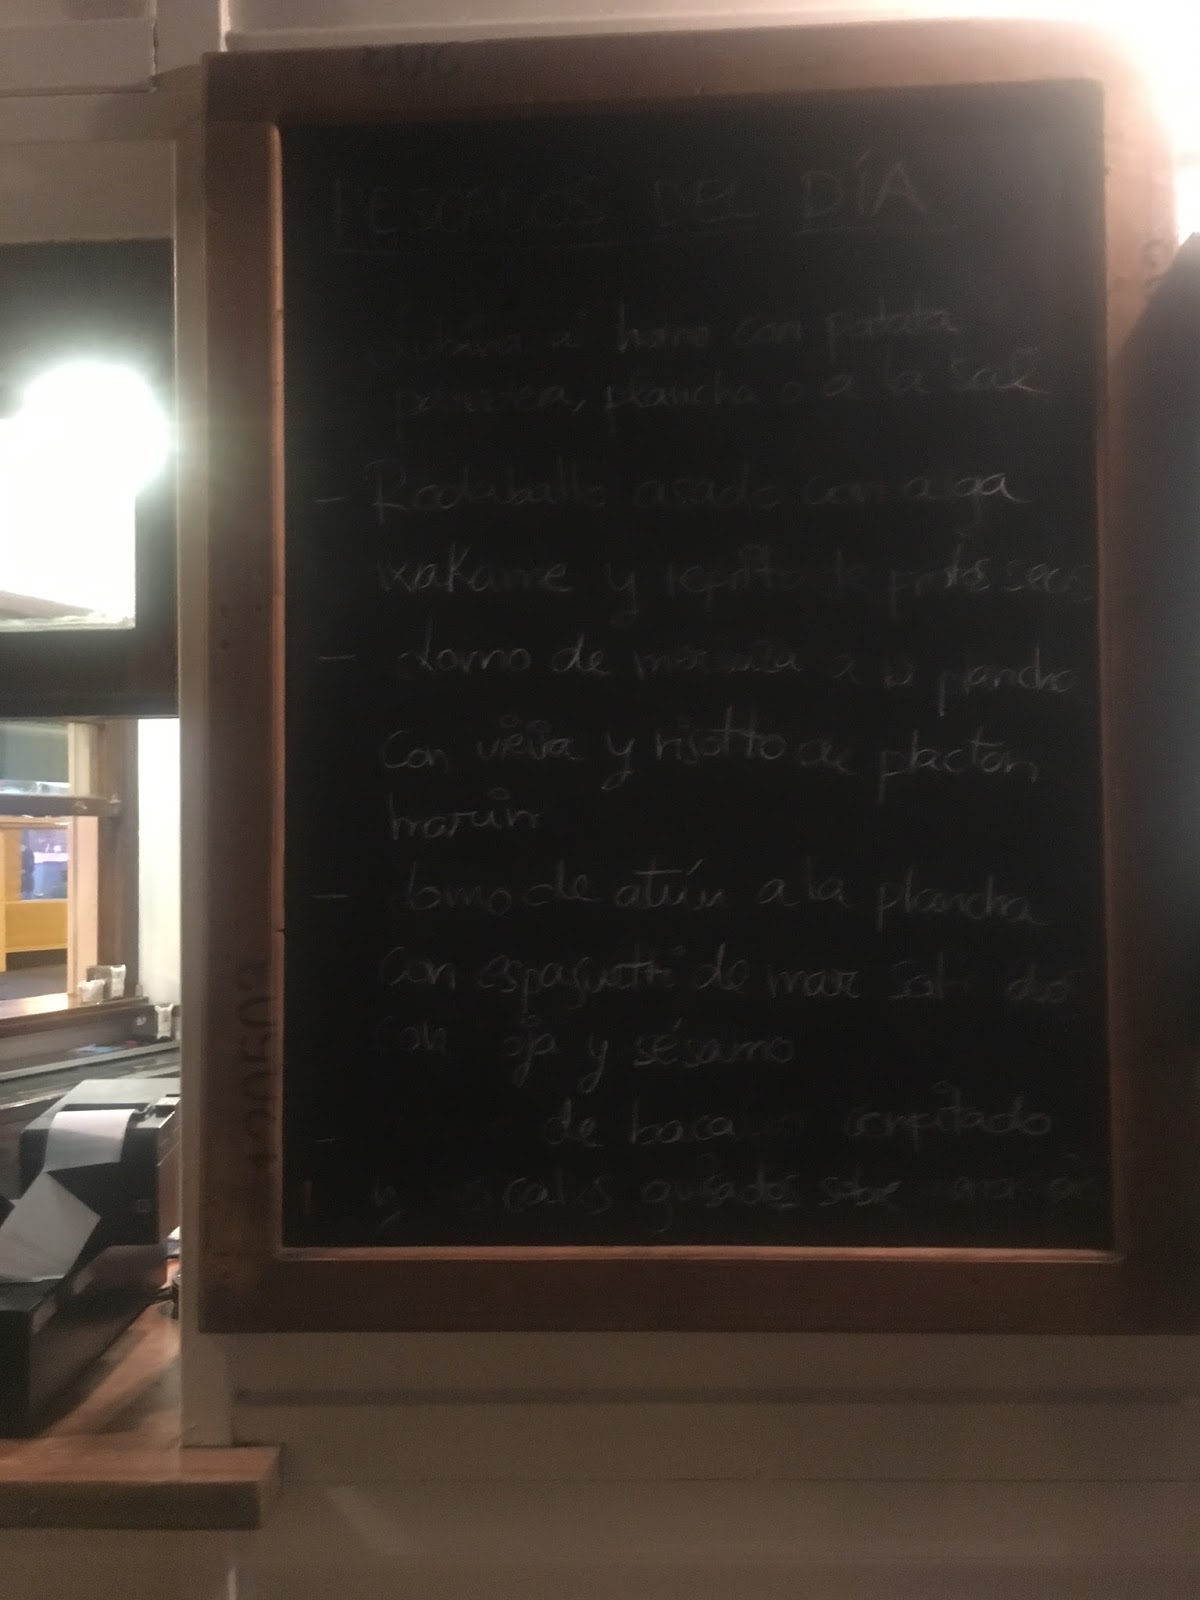 PESCADOS DEL DÍA
Lubina al horno con patata
panadera, plancha o a la sal
- Rodaballo asado con alga
wakame y de frutos secos
- Lomo de merluza a la plancha
con vieira y risotto de plactón
marino
- Lomo de atún a la plancha
con espaguetti de mar salteados
con soja y sésamo
- de bacalao confitado
y guisados sobre
120502